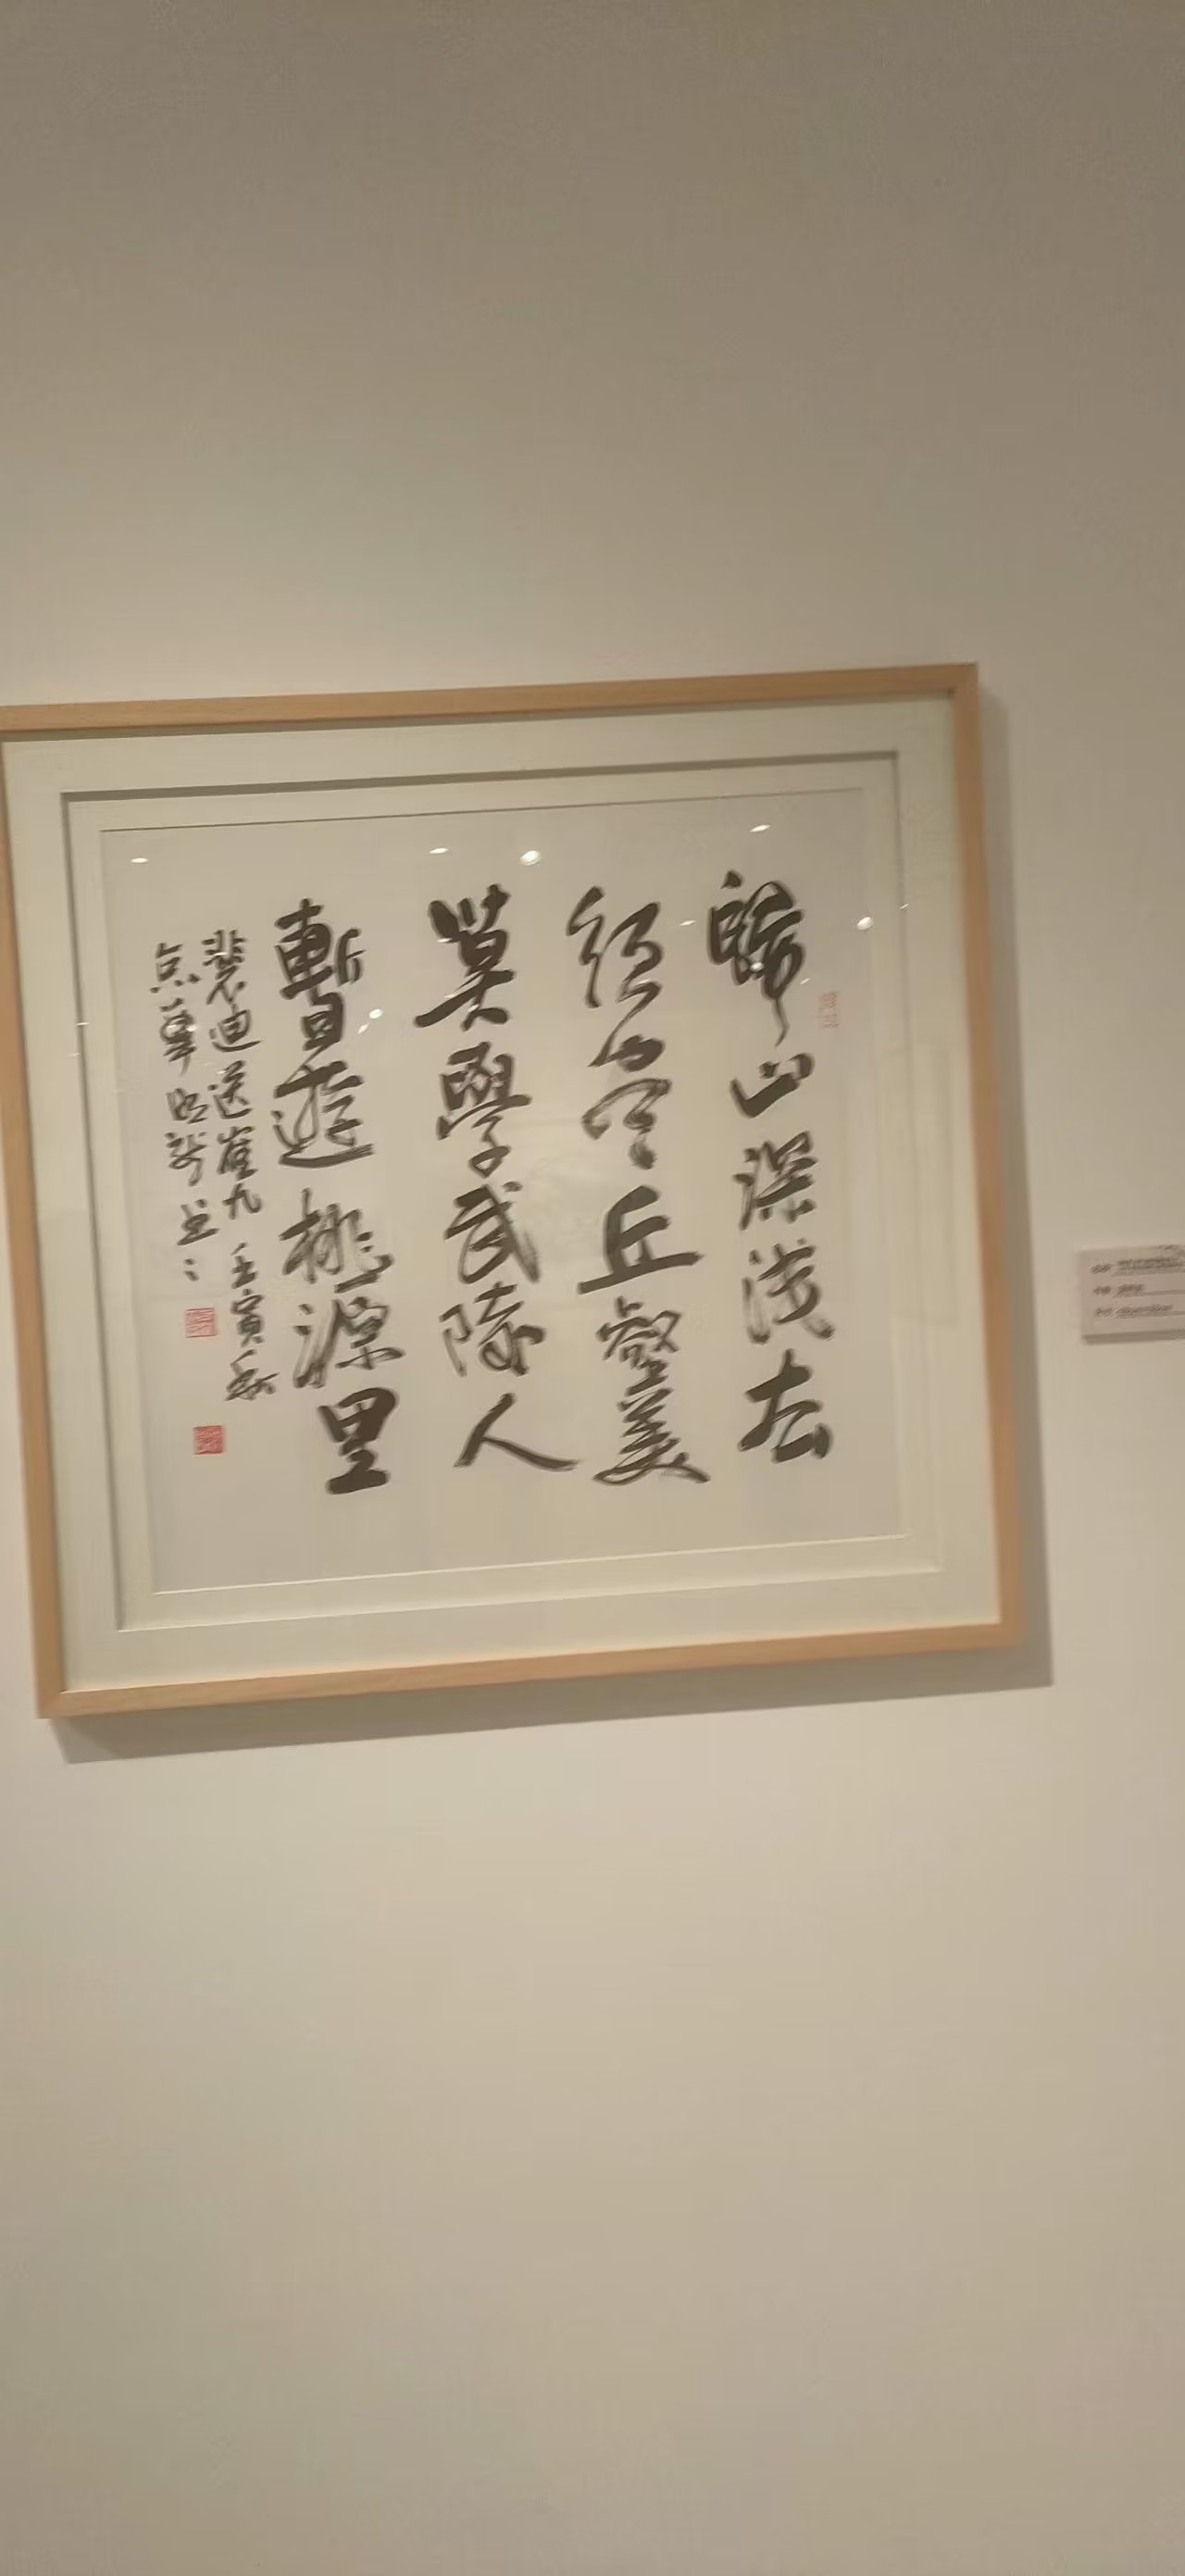 歸山深浅去
須盡丘壑美
莫學武陵人
暫遊桃源里
裴迪送崔九 壬寅秋
京華